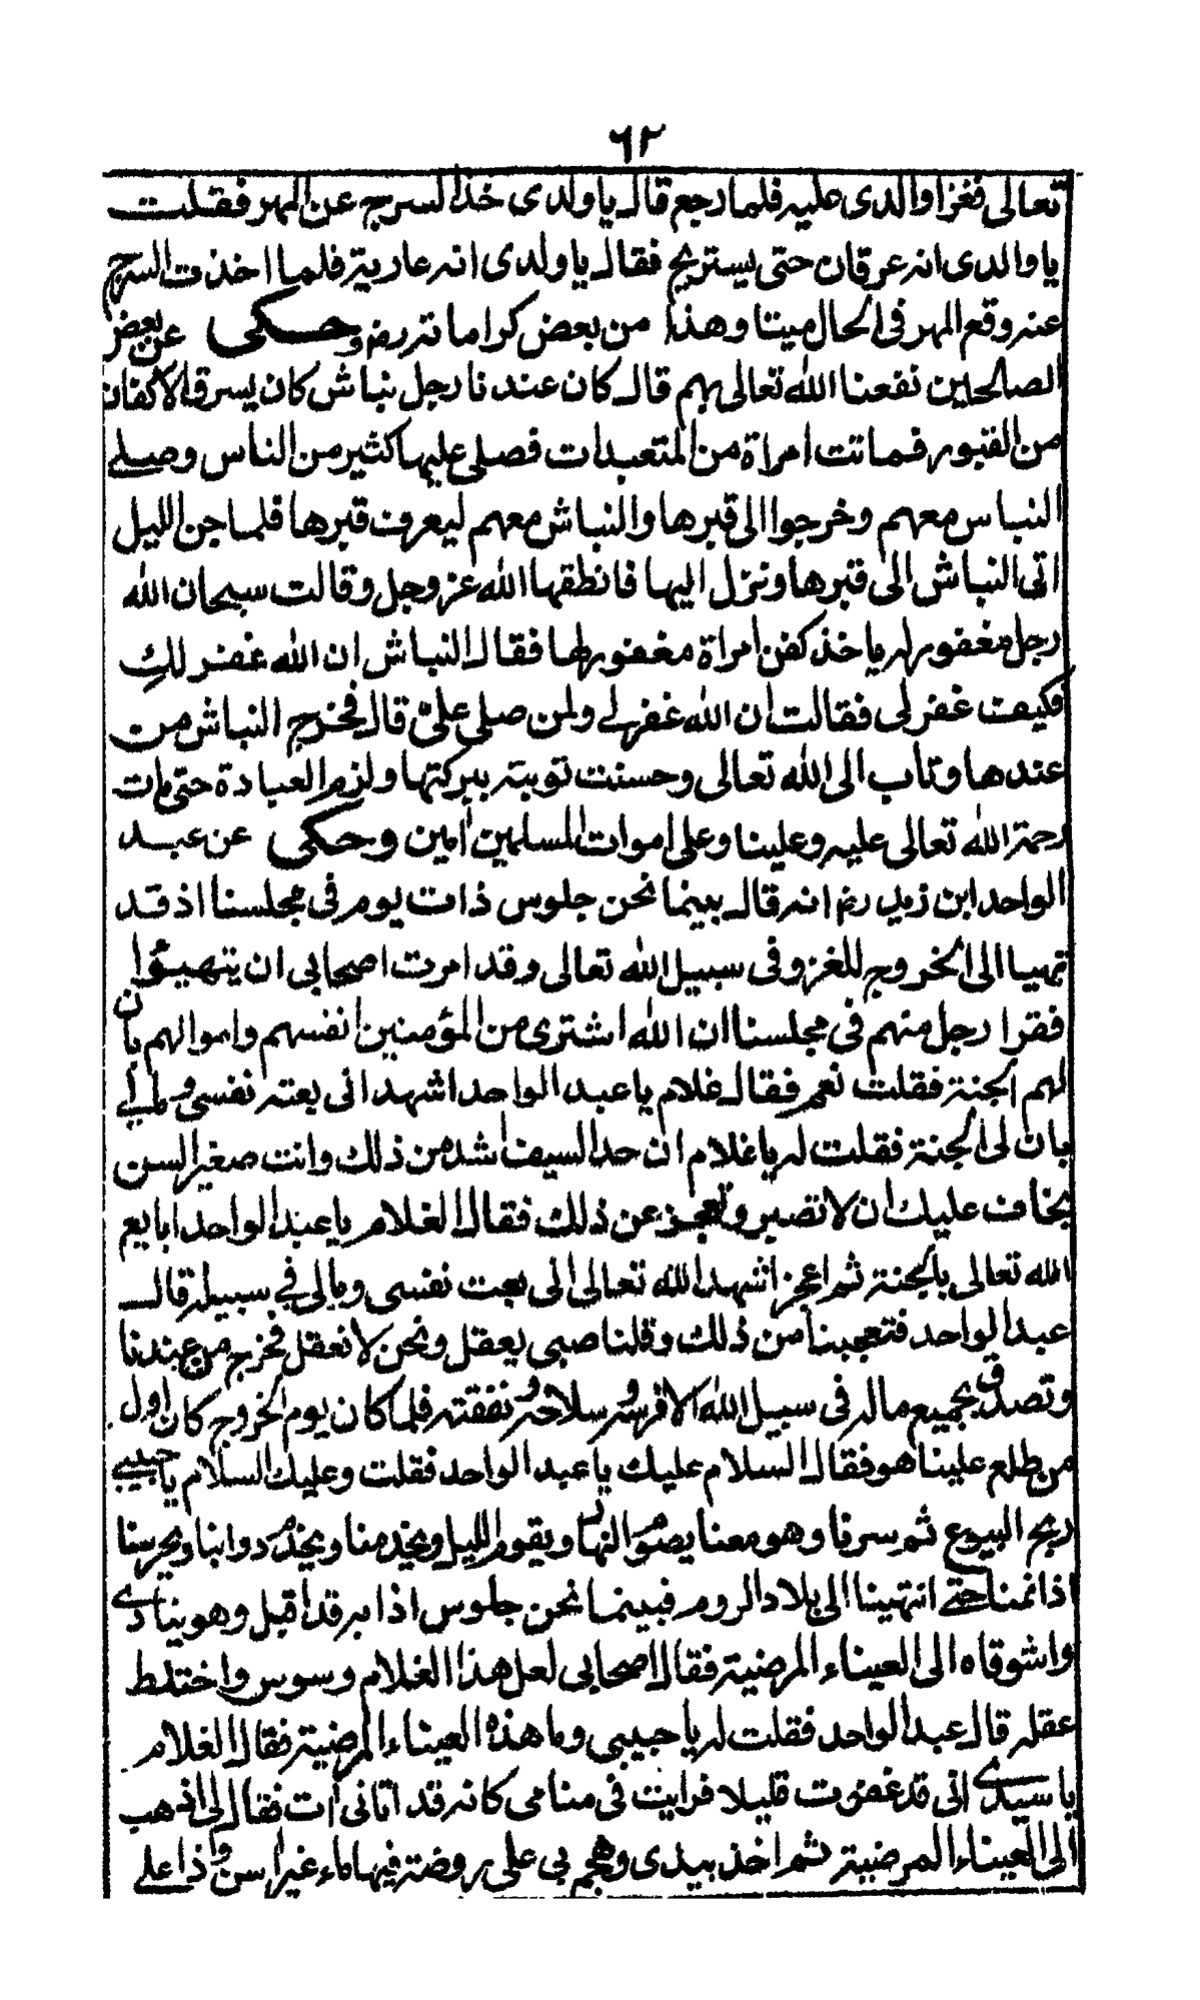 ٦٢
تعالى فغزا والدى عليه فلما رجع قال يا ولدى خذ السرج عن المهر فقلت
يا والدى انه عرقان حتى يستريح فقال يا ولدى انه عارية فلما اخذت السرج
عنه وقع المهر فى الحال ميتا وهذا من بعض كراماته رضه وحكى عن بعض
الصالحين نفعنا الله تعالى بهم قال كان عندنا رجل نباش كان يسرق الاكفان
من القبور فماتت امراة من المتعبدات فصلى عليها كثير من الناس وصلے
النباس معهم وخرجوا الى قبرها والنباش معهم ليعرف قبرها قلما جن الليل
اتى النباش الى قبرها ونزل اليها فانطقها الله عز وجل وقالت سبحان الله
رجل مغفور له ياخذ كفن امراة مغفور لها فقال النباش ان الله غفر لكِ
فكيف غفر لى فقالت ان الله غفر لے ولمن صلى علىّ قال فخرج النباش من
عندها وتاب الى الله تعالى وحسنت توبته ببركتها ولزم العبادة حتى مات
رحمة الله تعالى عليه وعلينا وعلى اموات المسلمين أمين وحكى عن عبد
الواحد ابن زيد رضه انه قال بينما نحن جلوس ذات يوم فى مجلسنا اذ قد
تهيا الى الخروج للغزو فى سبيل الله تعالى وقد امرت اصحابى ان يتهيؤا
فقرا رجل منهم فى مجلسنا ان الله اشترى من المؤمنين انفسهم واموالهم بان
لهم الجنة فقلت نعم فقال غلام يا عبد الواحد اشهد انى بعته نفسى ومالے
بان لى الجنة فقلت له يا غلام ان حد السيف اشد من ذلك وانت صغير السن
يخاف عليك ان لا تصبر وتعجز عن ذلك فقال الغلام يا عبد الواحد ابايع
الله تعالى بالجنة ثم اعجز اشهد الله تعالى انى بعت نفسى ومالى فے سبيله قال
عبد الواحد فتعجبنا من ذلك وقلنا صبى يعقل ونحن لا نعقل فخرج من عندنا
وتصدق بجميع ماله فى سبيل الله الا فرسه وسلاحه ونفقته فلما كان يوم الخروج كان اول
من طلع علينا هو فقال السلام عليك يا عبد الواحد فقلت وعليك السلام يا حبيبے
ربح البيوع ثم سرنا وهو معنا يصوم النهار ويقوم الليل ويخدمنا ويخدم دوابنا ويحرسنا
اذا نمنا حتے انتهينا الى بلاد الروم فبينما نحن جلوس اذا به قد اقبل وهو ينادے
واشوقاه الى العيناء المرضية فقال اصحابى لعل هذا الغلام وسوس واختلط
عقله قال عبد الواحد فقلت له يا حبيبى وما هذه العيناء المرضية فقال الغلام
يا سيدے انى قد غفوت قليلا فرايت فى منامى كانه قد اتانى أت فقال لى اذهب
الى العيناء المرضية ثم اخذ بيدى وهجم بى على روضة فيها ماء غير اسن واذا على